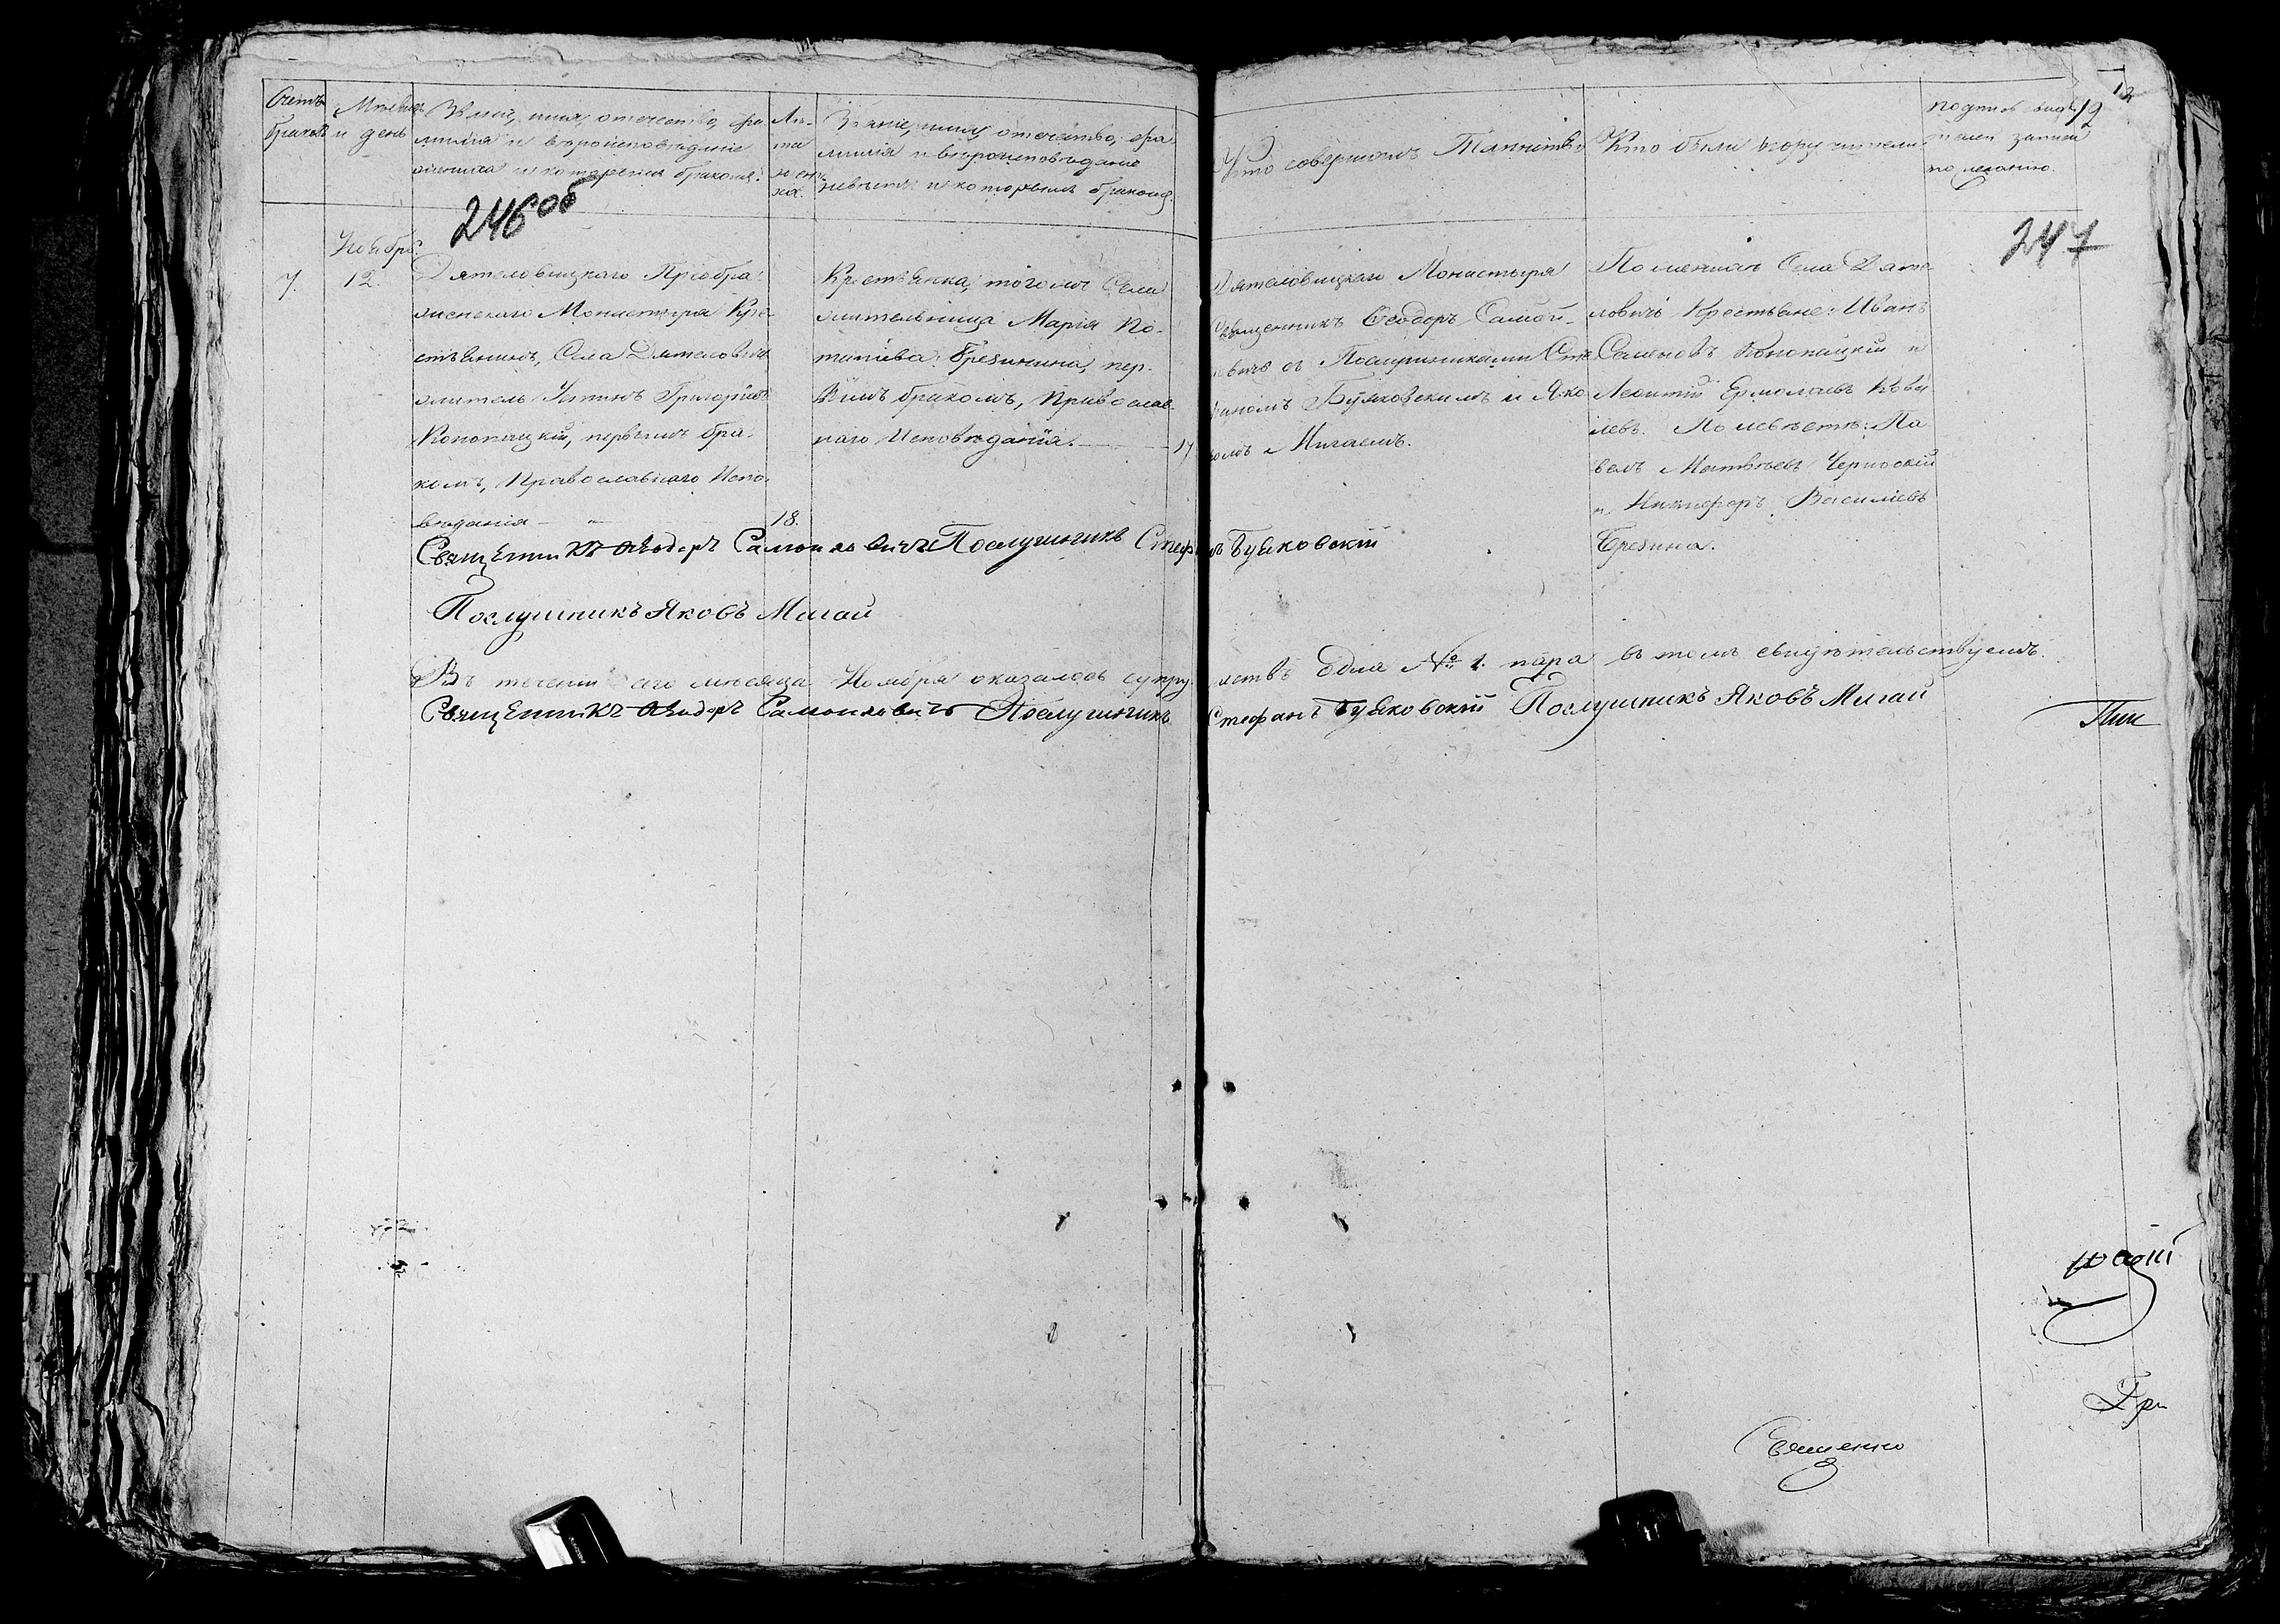 Счетъ браковъ
Мѣсяцъ и день
Званіе, имя, отечество, фа-
милія и вѣроисповѣданіе
жениха и которымъ бракомъ.
Лѣ-
та
жени-
ха.
Званіе, имя, отечество, фа-
милія и вѣроисповѣданіе
невѣсты и которымъ бракомъ.
Кто совершалъ Таинство
Кто были поручители
подпись свидѣ-
телей записи
по желанію.
12
19
246об
247
Ноябрь
7.
12.
Дятеловицкаго Преобра-
женскаго Монастыря Кре-
стьянинъ, Села Дятеловичъ
житель Устинъ Григорьевъ
Конопацкій, первымъ бра-
комъ, Православнаго Испо-
вѣданія
18.
Крестьянка, тогожъ Села
жительница Марія По-
тапіева Брезинина, пер-
вымъ бракомъ, Православ-
наго Исповѣданія.
17
Дятеловицкаго Монастыря
Священникъ Ѳеодоръ Самой-
ловичъ съ Послушниками Сте-
фаномъ Буяковскимъ и Яко-
вомъ Мигаемъ.
По женихѣ Села Дяте-
ловичъ Крестьяне: Иванъ
Семеновъ Конопацкій и
Леонтій Ермолаевъ Кова
левъ. По невѣстѣ: Па
велъ Матвѣевъ
и Никифоръ Василіевъ
Брезина.
Священникъ Ѳеодоръ Самойловичъ Послушникъ Стефанъ Буяковскій
Послушникъ Яковъ Мигай
Въ теченіи сего мѣсяца Ноября оказалось супружествъ Една № 1. пара въ томъ свидѣтельствуемъ.
Священникъ Ѳеодоръ Самойловичъ Послушникъ Стефанъ Буяковскій Послушникъ Яковъ Мигай